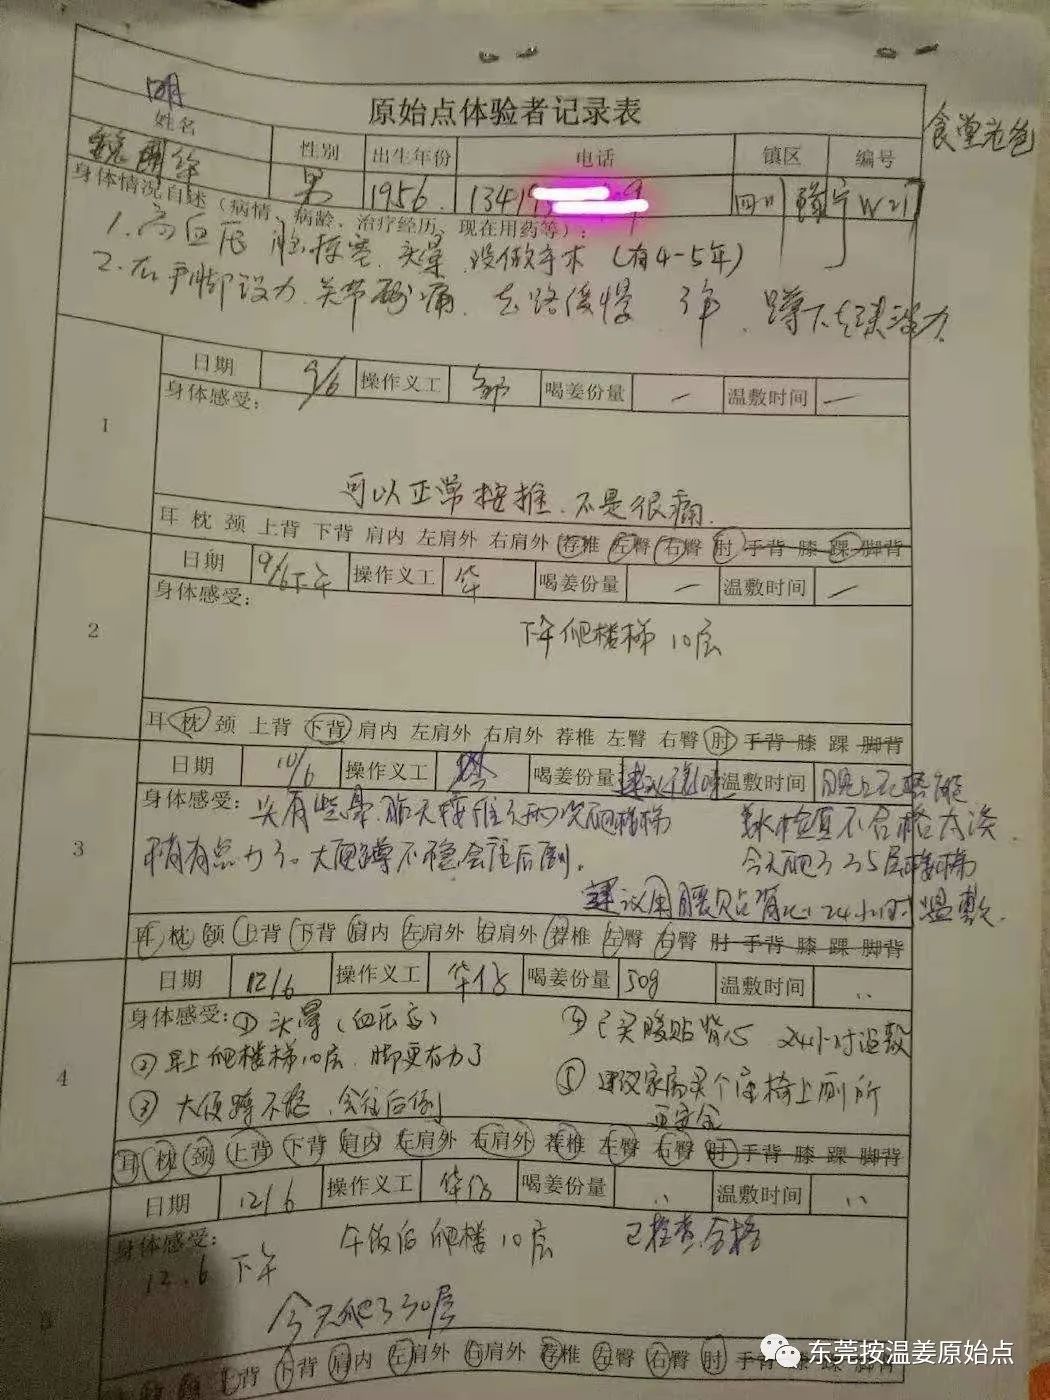 原始点体验者记录表
食堂老爸
明
姓名 性别 出生年份 电话 镇区 编号
男 1956. 四川 遂宁 W217
身体情况自述（病情、病龄、治疗经历、现在用药等）：
1. 高血压 脑梗塞. 头晕. 没做手术（有4-5年）
2. 右手脚没力. 关节酸痛. 走路缓慢 3年. 蹲下起来没力.
1
日期 9/6 操作义工 邹 喝姜份量 一 温敷时间 一
身体感受：
可以正常按推. 不是很痛.
耳 枕 颈 上背 下背 肩内 左肩外 右肩外 荐椎 左臀 右臀 肘 手背 膝 踝 脚背
2
日期 9/6下午 操作义工 华 喝姜份量 一 温敷时间 一
身体感受：
下午爬楼梯 10层
耳 枕 颈 上背 下背 肩内 左肩外 右肩外 荐椎 左臀 右臀 肘 手背 膝 踝 脚背
3
日期 10/6 操作义工 喝姜份量 温敷时间
身体感受： 头有些晕. 姜水检查不合格太淡.
稍有点力了. 大便蹲不稳会往后倒. 今天爬了35层楼梯
建议用暖贴背心24小时温敷.
耳 枕 颈 上背 下背 肩内 左肩外 右肩外 荐椎 左臀 右臀 肘 手背 膝 踝 脚背
4
日期 12/6 操作义工 喝姜份量 50g 温敷时间 ..
身体感受： ① 头晕（血压高） ④ 已买暖贴背心 24小时温敷
② 早上爬楼梯10层. 脚更有力了 ⑤ 建议家属买个座椅上厕所
③ 大便蹲不稳. 会往后倒 更安全
耳 枕 颈 上背 下背 肩内 左肩外 右肩外 荐椎 左臀 右臀 肘 手背 膝 踝 脚背
日期 12/6 操作义工 喝姜份量 .. 温敷时间 ..
身体感受： 午饭后爬楼10层 已检查合格
12.6 下午
今天爬了30层
背 下背 肩内 左肩外 右肩外 荐椎 左臀 右臀 肘 手背 膝 踝 脚背
东莞按温姜原始点